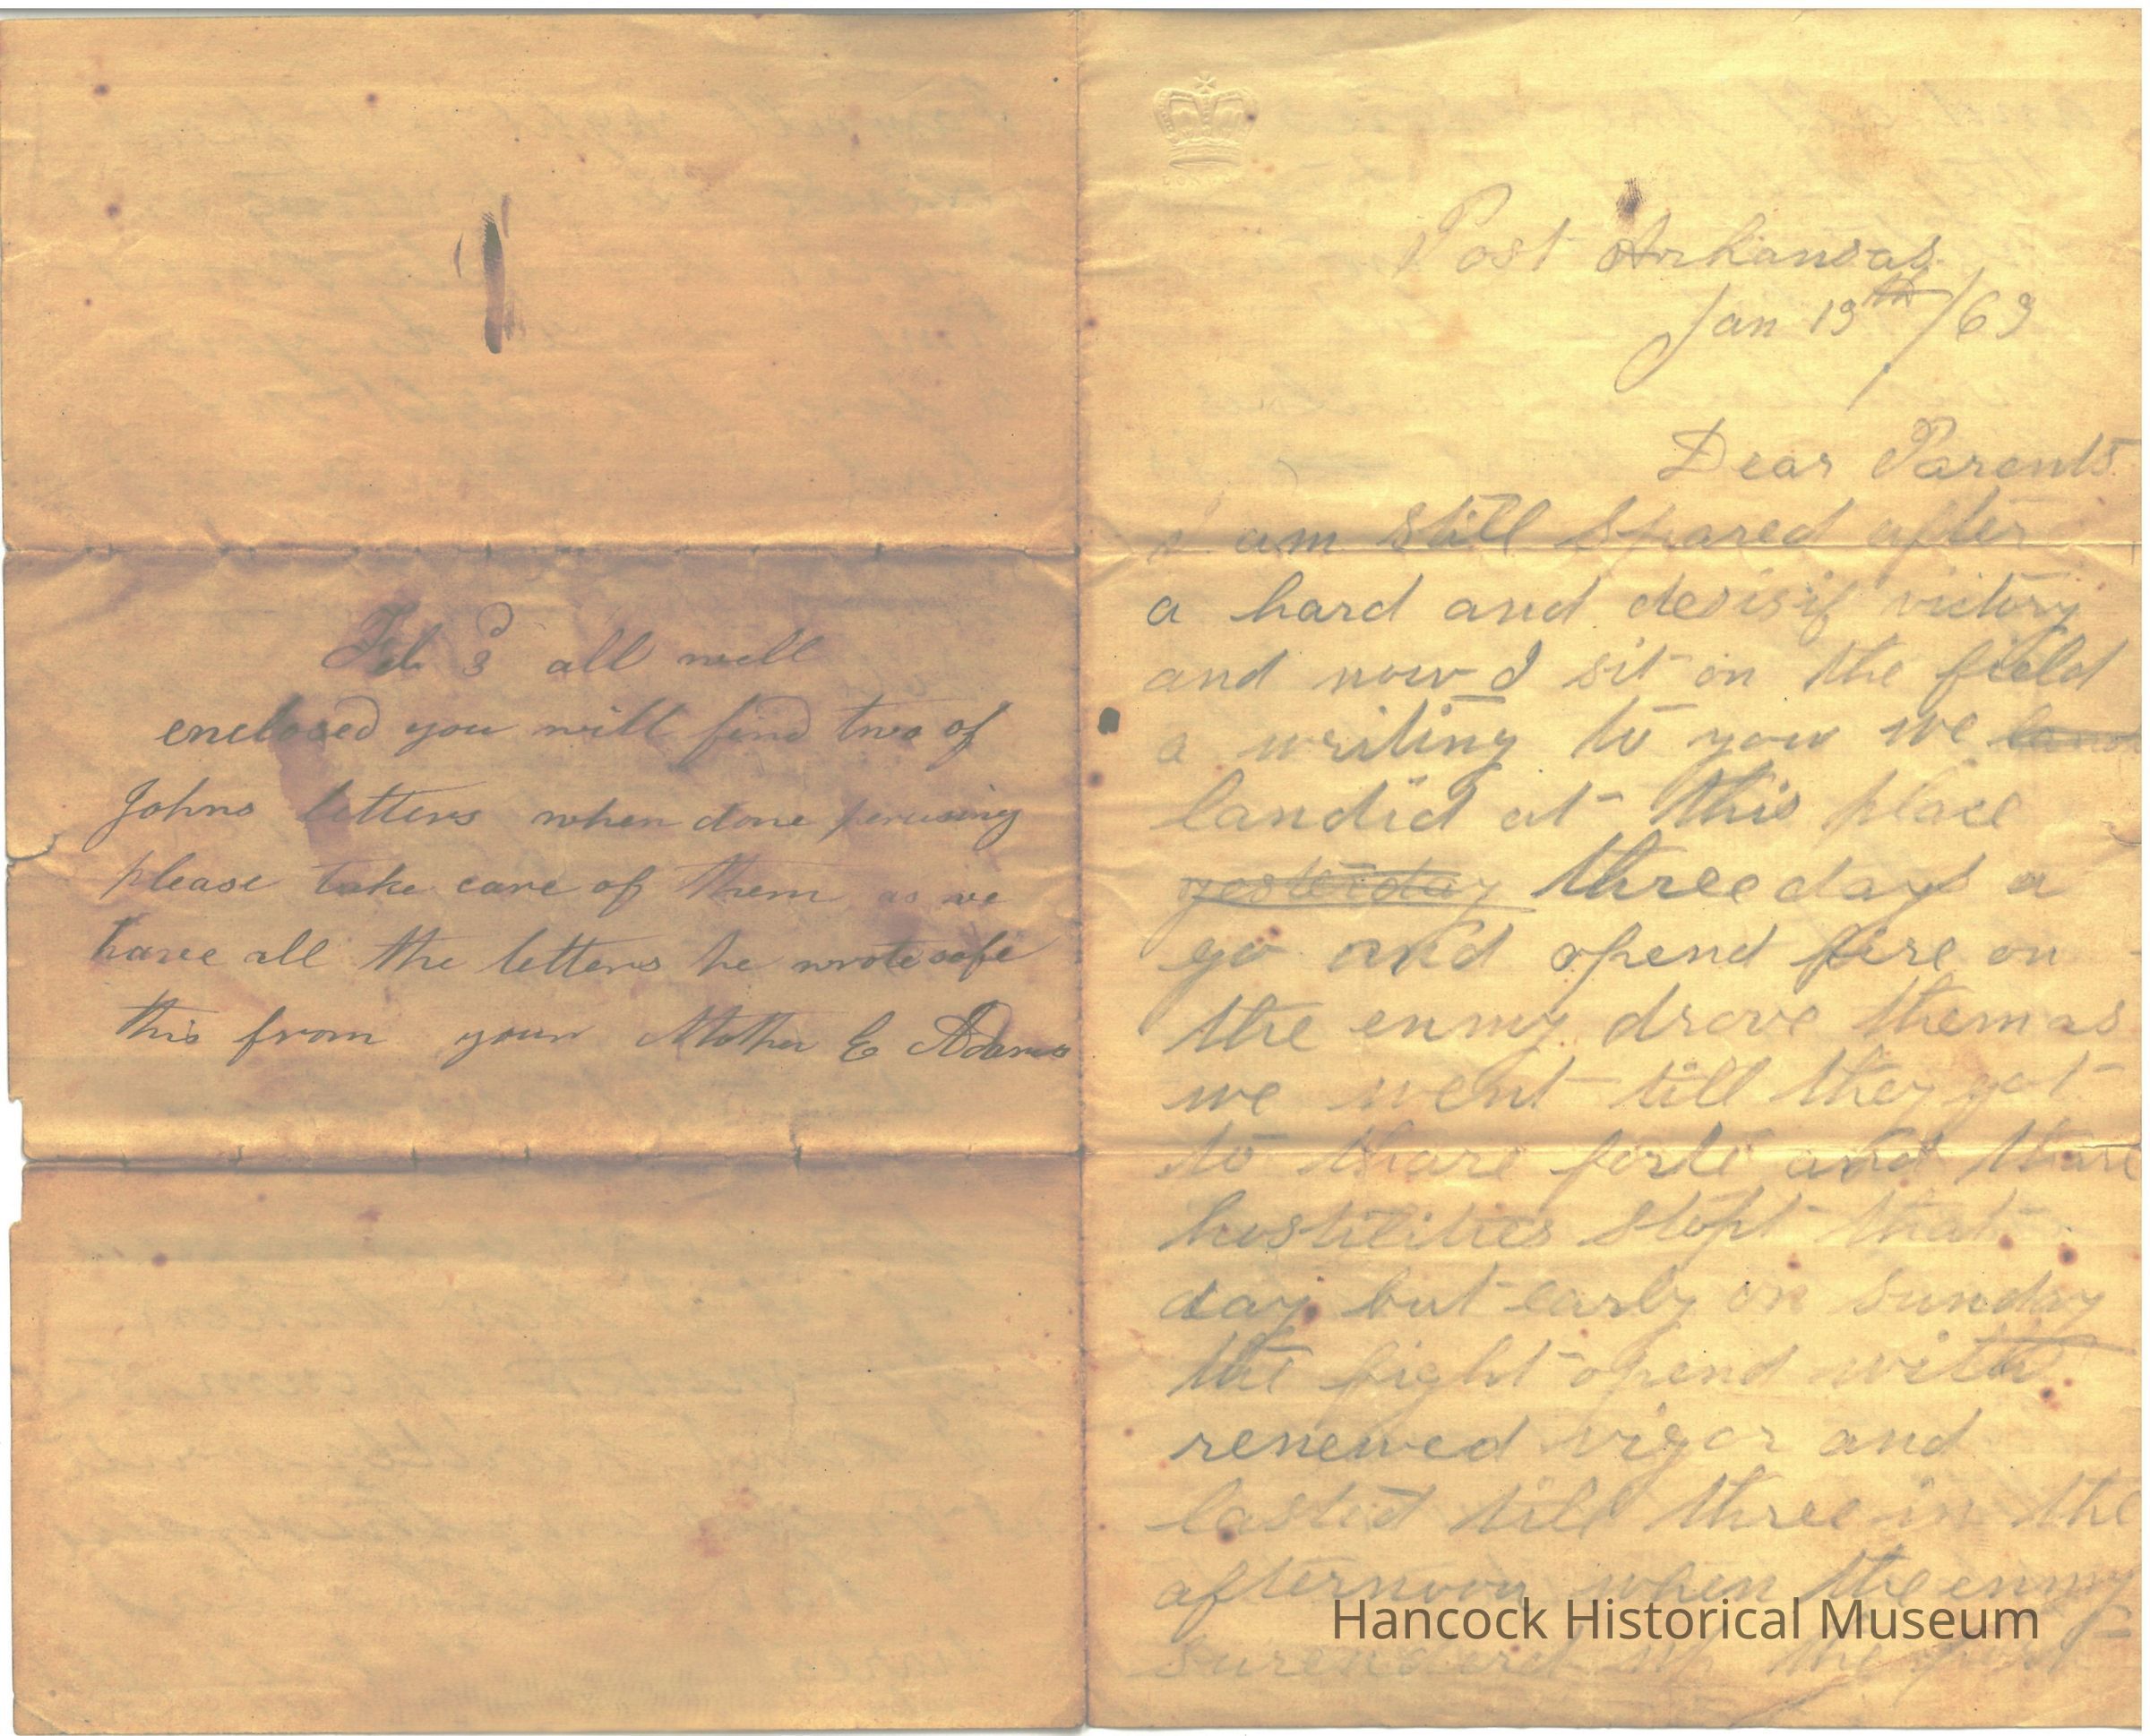 Feb 3 all well
enclosed you will find two of
Johns letters when done perusing
please take care of them as we
have all the letters he wrote safe
this from your Mother E Adams
Post Arkansas
Jan 13th /63
Dear Parents
I am still spared after
a hard and desisif victory
and now I sit on the field
a writing to you we
landid at this place
yesterday three days a
go and opend fire on
the enmy drove them as
we went till they got
to thare forte and thare
hostilities stopt that
day but early on sunday
the fight opend with
renewed vigor and
lasted till three in the
afternoon when the enmy
surenderd up the
Hancock Historical Museum